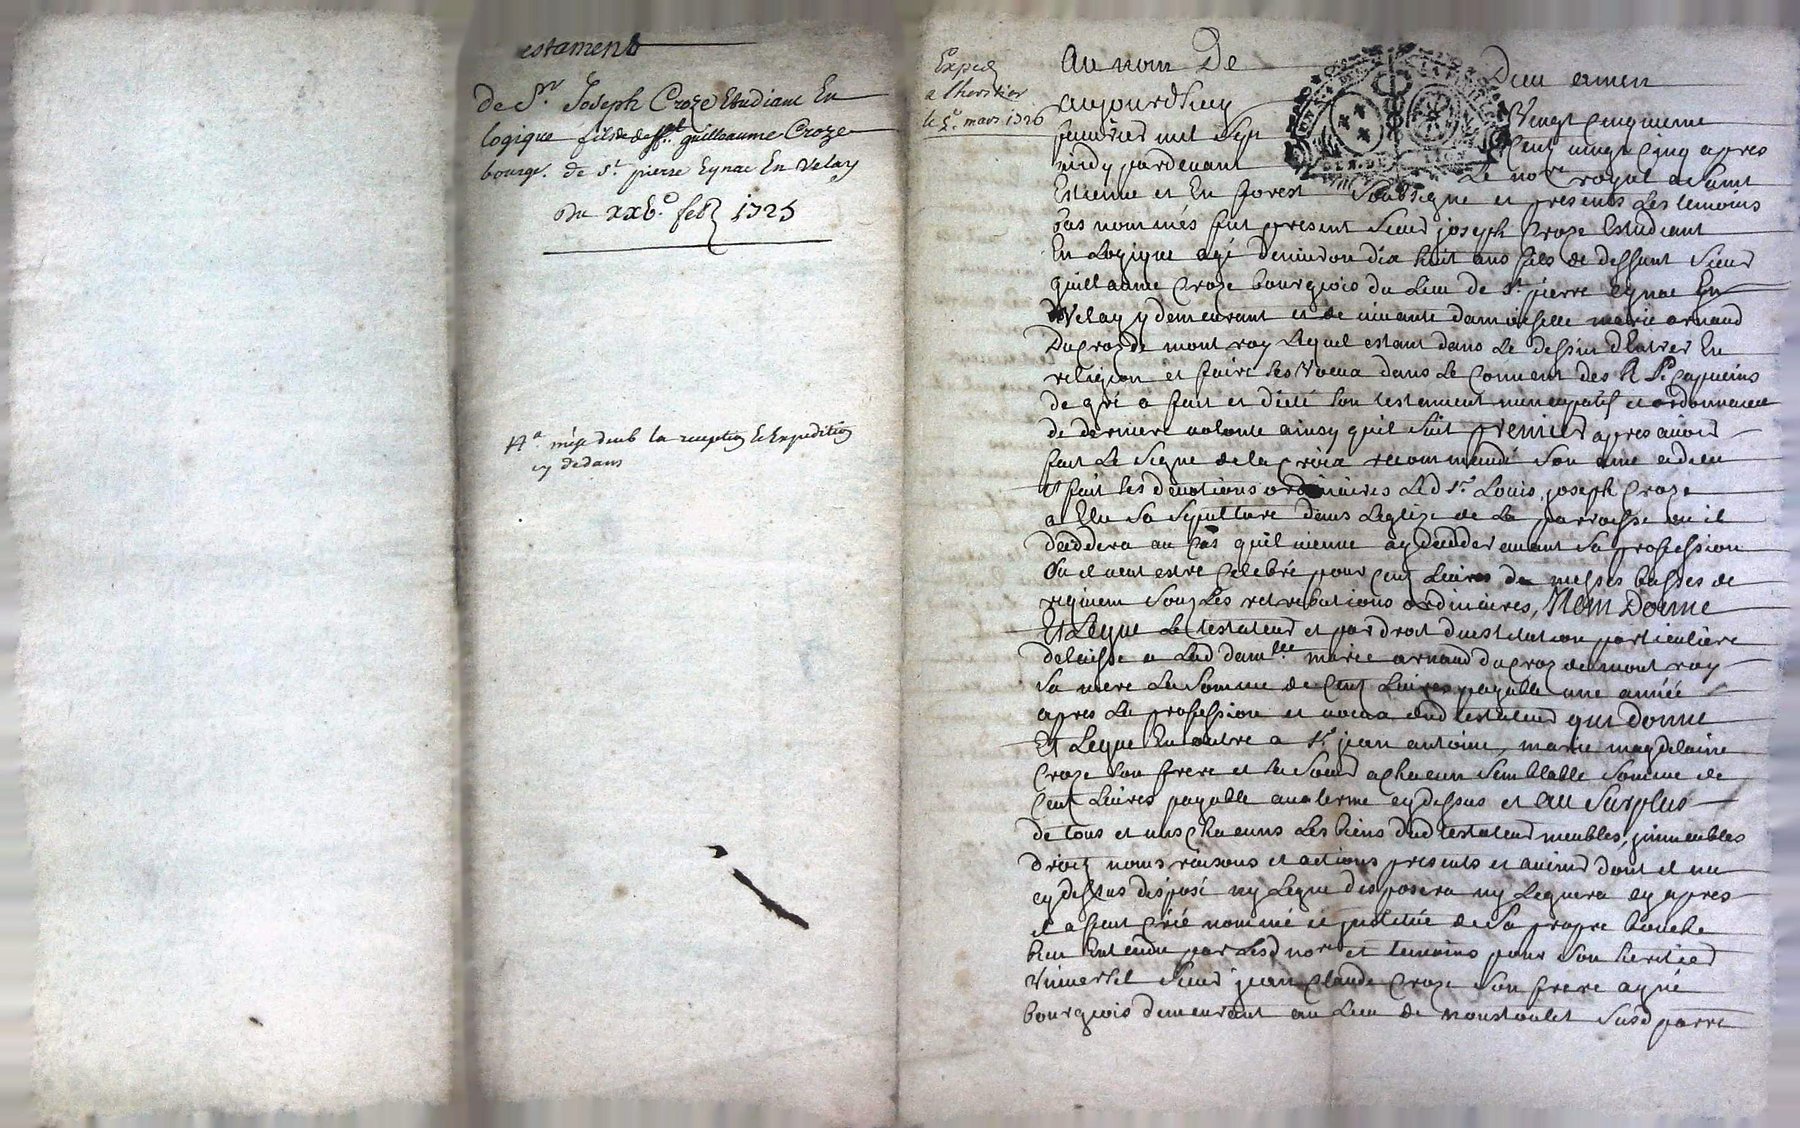 estament
de Sr. Joseph Croze Etudiant En
logique fils de defft. guillaume Croze
bourgs. de St. pierre Eynac En velay
du xxv.e feb. 1725
mise deub la reception & Expedition
cy dedans
Exped
a lheritier
le 5e. mars 1726
Au nom De Dieu amen
aujourdhuy Vingt Cinquieme
fevrier mil Sept Cent vingt Cinq apres
midy pardevant Le nore royal a Saint
Estienne et En forest Soubsigne et presents Les temoins
bas nommés fut present Sieur joseph Croze Estudiant
En Logique agé denviron dix huit ans fils de deffunt Sieur
guillaume Croze bourgeois du Lieu de St. pierre Eynac En
Velay y demeurant et de vivante damoiselle marie arnaud
Ducroz de mont ray Lequel estant dans Le dessin dEntrer En
religion et faire Ses Voeux dans Le Convent des R Ps. Capucins
de gré a fait et dicté Son testament nuncupatif et ordonnance
de derniere volonte ainsy quil Suit premier apres avoir
fait Le Signe de la Croix recommandé Son ame a dieu
et fait Ses devotions ordinaires Led Sr. Louis joseph Croze
a Elu Sa Sepulture dans Leglize de La parroisse ou il
deceddera au Cas quil vienne a y decedder avant Sa profession
Ou il veut estre Celebré pour Cent Livres de messes basses de
requiem Souz Les retributions ordinaires, Item Donne
Et Legue Le testateur et par droit dinstitution particuliere
delaisse a Lad damlle marie arnaud du Croz de mont ray
Sa mere La Somme de Cent Livres payable une année
apres La profession et voeux dud testateur qui donne
Et Legue En outre a Sr. jean antoine, marie magdelaine
Croze Son frere et Sa Soeur a Chacun Semblable Somme de
Cent Livres payable au terme cy dessus et au Surplus
de tous et uns Chacuns Les biens dud testateur meubles, jmmeubles
droitz noms raisons et actions presents et avenir dont il na
cy dessus disposé ny Legue disposera ny Leguera cy apres
il a fait Créé nommé et jnstitué de Sa propre bouche
bien Entendu par Lesd nore et temoins pour Son heritier
Vniversel Sieur jean Claude Croze Son frere ayné
bourgeois demeurant au Lieu de monstoulet Susd parre